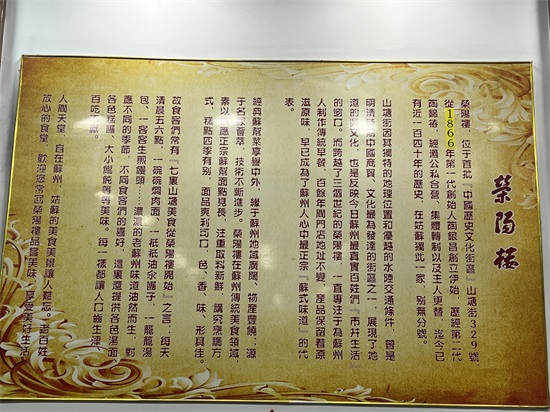 榮陽樓
榮陽樓,位于首批『中國歷史文化街區』山塘街329號
從1866年第一代創始人函銀昌創立伊始,歷經第二代
函錦椿、經過公私合營、集體轉制以及主人更替,迄今已
有近一百四十年的歷史,在姑蘇獨此一家,別無分號。
山塘街因其獨特的地理位置和優越的水陸交通條件,曾是
明清時期中國商貿、文化最為發達的街區之一,展現了地
道的吳文化,也是反映今日蘇州最真實百姓們『市井生活』
的窗口。而跨越了三個世紀的榮陽樓,一直專注于為蘇州
人制作傳統早餐,百餘年間門店地址不變,產品保留着原
滋原味,早已成為了蘇州人心中最正宗『蘇式味道』的代
表。
經典蘇幫菜享譽中外,緣于蘇州地域廣闊、物產豐饒;源
于名家薈萃,技術不斷進步。榮陽樓在蘇州傳統美食領域
素以供應正宗蘇幫面點見長,注重取料新鮮、講究烹調方
式,糕點四季有別,面品爽利可口,色、香、味、形具佳。
故食客們常有『七裏山塘美食從榮陽樓開始』之言;每天
清晨五六點,一碗碗燜肉面、一袛袛油氽團子、一籠籠湯
包、一客客生煎饅頭……濃濃的老蘇州味道油然而生,對
應不同的季節,不同食客們的喜好,這裏還提供各色湯面
各色糕團、大小餛飩等等美味。每一樣都讓人口齒生津
百吃不厭。
人間天堂,自在蘇州,姑蘇的美食美景讓人難忘。老百姓
放心的食堂,歡迎您常回榮陽樓品嘗美味,享受美好生活